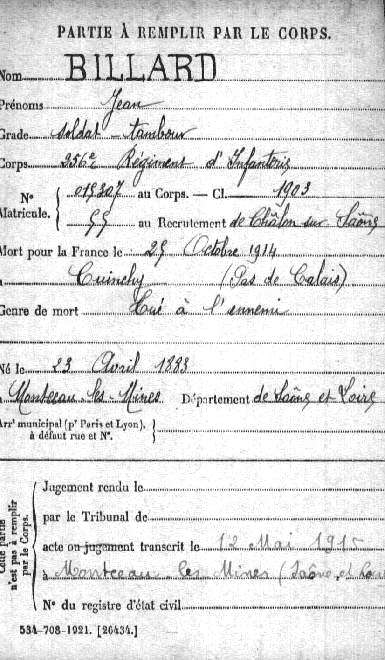 PARTIE À REMPLIR PAR LE CORPS.
Nom BILLARD
Prénoms Jean
Grade soldat - tambour
Corps 256e Régiment d'Infanterie
N° 015307 au Corps. — Cl. 1903
Matricule. 55 au Recrutement de Châlon sur Saône
Mort pour la France le 25 Octobre 1914
à Cuinchy (Pas de Calais)
Genre de mort Tué à l'ennemi
Né le 23 Avril 1883
à Montceau-les-Mines Département de Saône et Loire
Arrt municipal (pr Paris et Lyon),
à défaut rue et N°.
Cette partie
n'est pas à remplir
par le Corps.
Jugement rendu le
par le Tribunal de
acte ou jugement transcrit le 12 Mai 1915
à Montceau les Mines (Saône et Loire
N° du registre d'état civil
534-708-1921. [26434.]